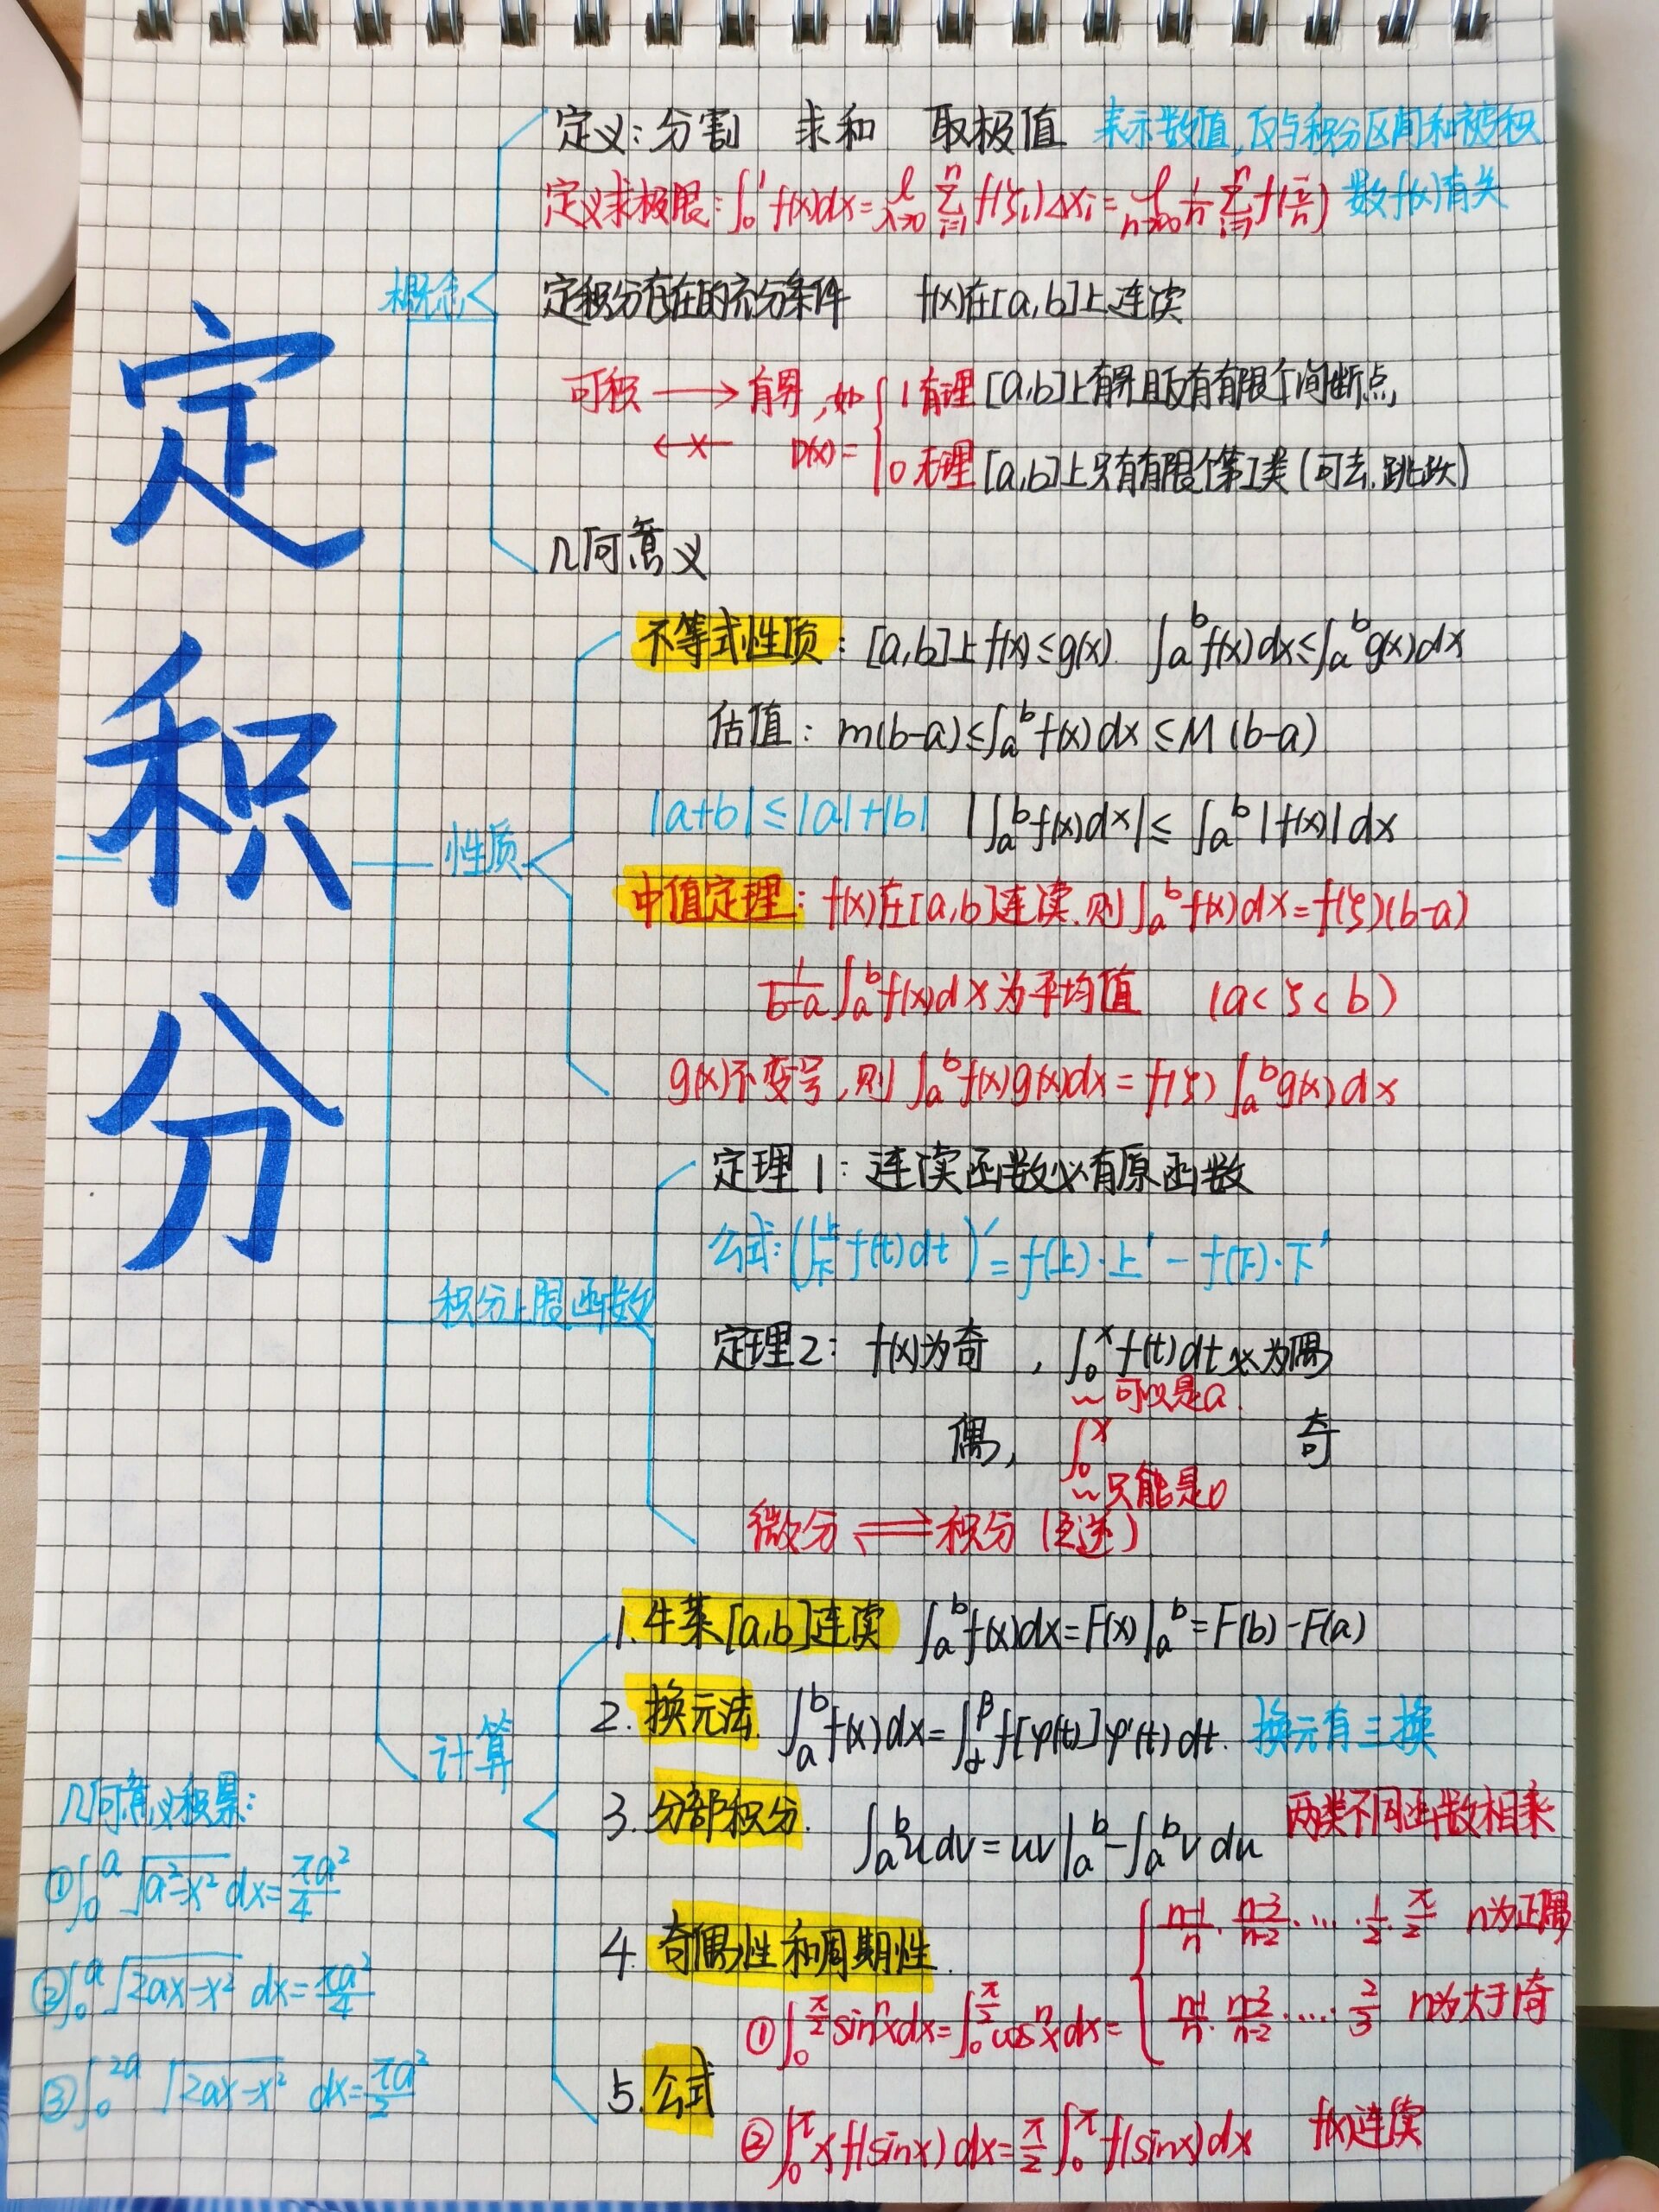 定积分
概念
定义:分割 求和 取极值 表示数值,仅与积分区间和被积
定义求极限:∫₀¹f(x)dx=lim_{λ→0} Σ_{i=1}^{n} f(ξi)Δxi=lim_{n→∞} 1/n Σ_{i=1}^{n} f(i/n) 数f(x)有关
定积分存在的充分条件 f(x)在[a,b]上连续
可积 → 有界,如 { 1 有理 [a,b]上有界且仅有有限个间断点,
←×— D(x)= { 0 无理 [a,b]上只有有限个第I类(可去.跳跃)
几何意义
性质
不等式性质:[a,b]上f(x)≤g(x). ∫ₐᵇf(x)dx≤∫ₐᵇg(x)dx
估值:m(b-a)≤∫ₐᵇf(x)dx≤M(b-a)
|a+b|≤|a|+|b| |∫ₐᵇf(x)dx|≤∫ₐᵇ|f(x)|dx
中值定理:f(x)在[a,b]连续.则∫ₐᵇf(x)dx=f(ξ)(b-a)
1/(b-a)∫ₐᵇf(x)dx为平均值 (a<ξ<b)
g(x)不变号,则∫ₐᵇf(x)g(x)dx=f(ξ)∫ₐᵇg(x)dx
积分上限函数
定理1:连续函数必有原函数
公式:(∫_下^上 f(t)dt)′=f(上)·上′-f(下)·下′
定理2:f(x)为奇,∫₀ˣf(t)dt必为偶
~可以是a.
偶,∫₀ˣ 奇
~只能是0
微分⇌积分(互逆)
计算
1.牛莱[a,b]连续 ∫ₐᵇf(x)dx=F(x)|ₐᵇ=F(b)-F(a)
2.换元法. ∫ₐᵇf(x)dx=∫_α^β f[φ(t)]φ′(t)dt. 换元有三换
3.分部积分. ∫ₐᵇudv=uv|ₐᵇ-∫ₐᵇvdu 两类不同函数相乘
4.奇偶性和周期性.
5.公式
①∫₀^{π/2}sinⁿxdx=∫₀^{π/2}cosⁿxdx= { (n-1)/n·(n-3)/(n-2)·…·1/2·π/2 n为正偶
{ (n-1)/n·(n-3)/(n-2)·…·2/3 n为大于1奇
②∫₀^π xf(sinx)dx=π/2∫₀^π f(sinx)dx f(x)连续
几何意义积累:
①∫₀ᵃ√(a²-x²)dx=πa²/4
②∫₀ᵃ√(2ax-x²)dx=πa²/4
③∫₀^{2a}√(2ax-x²)dx=πa²/2